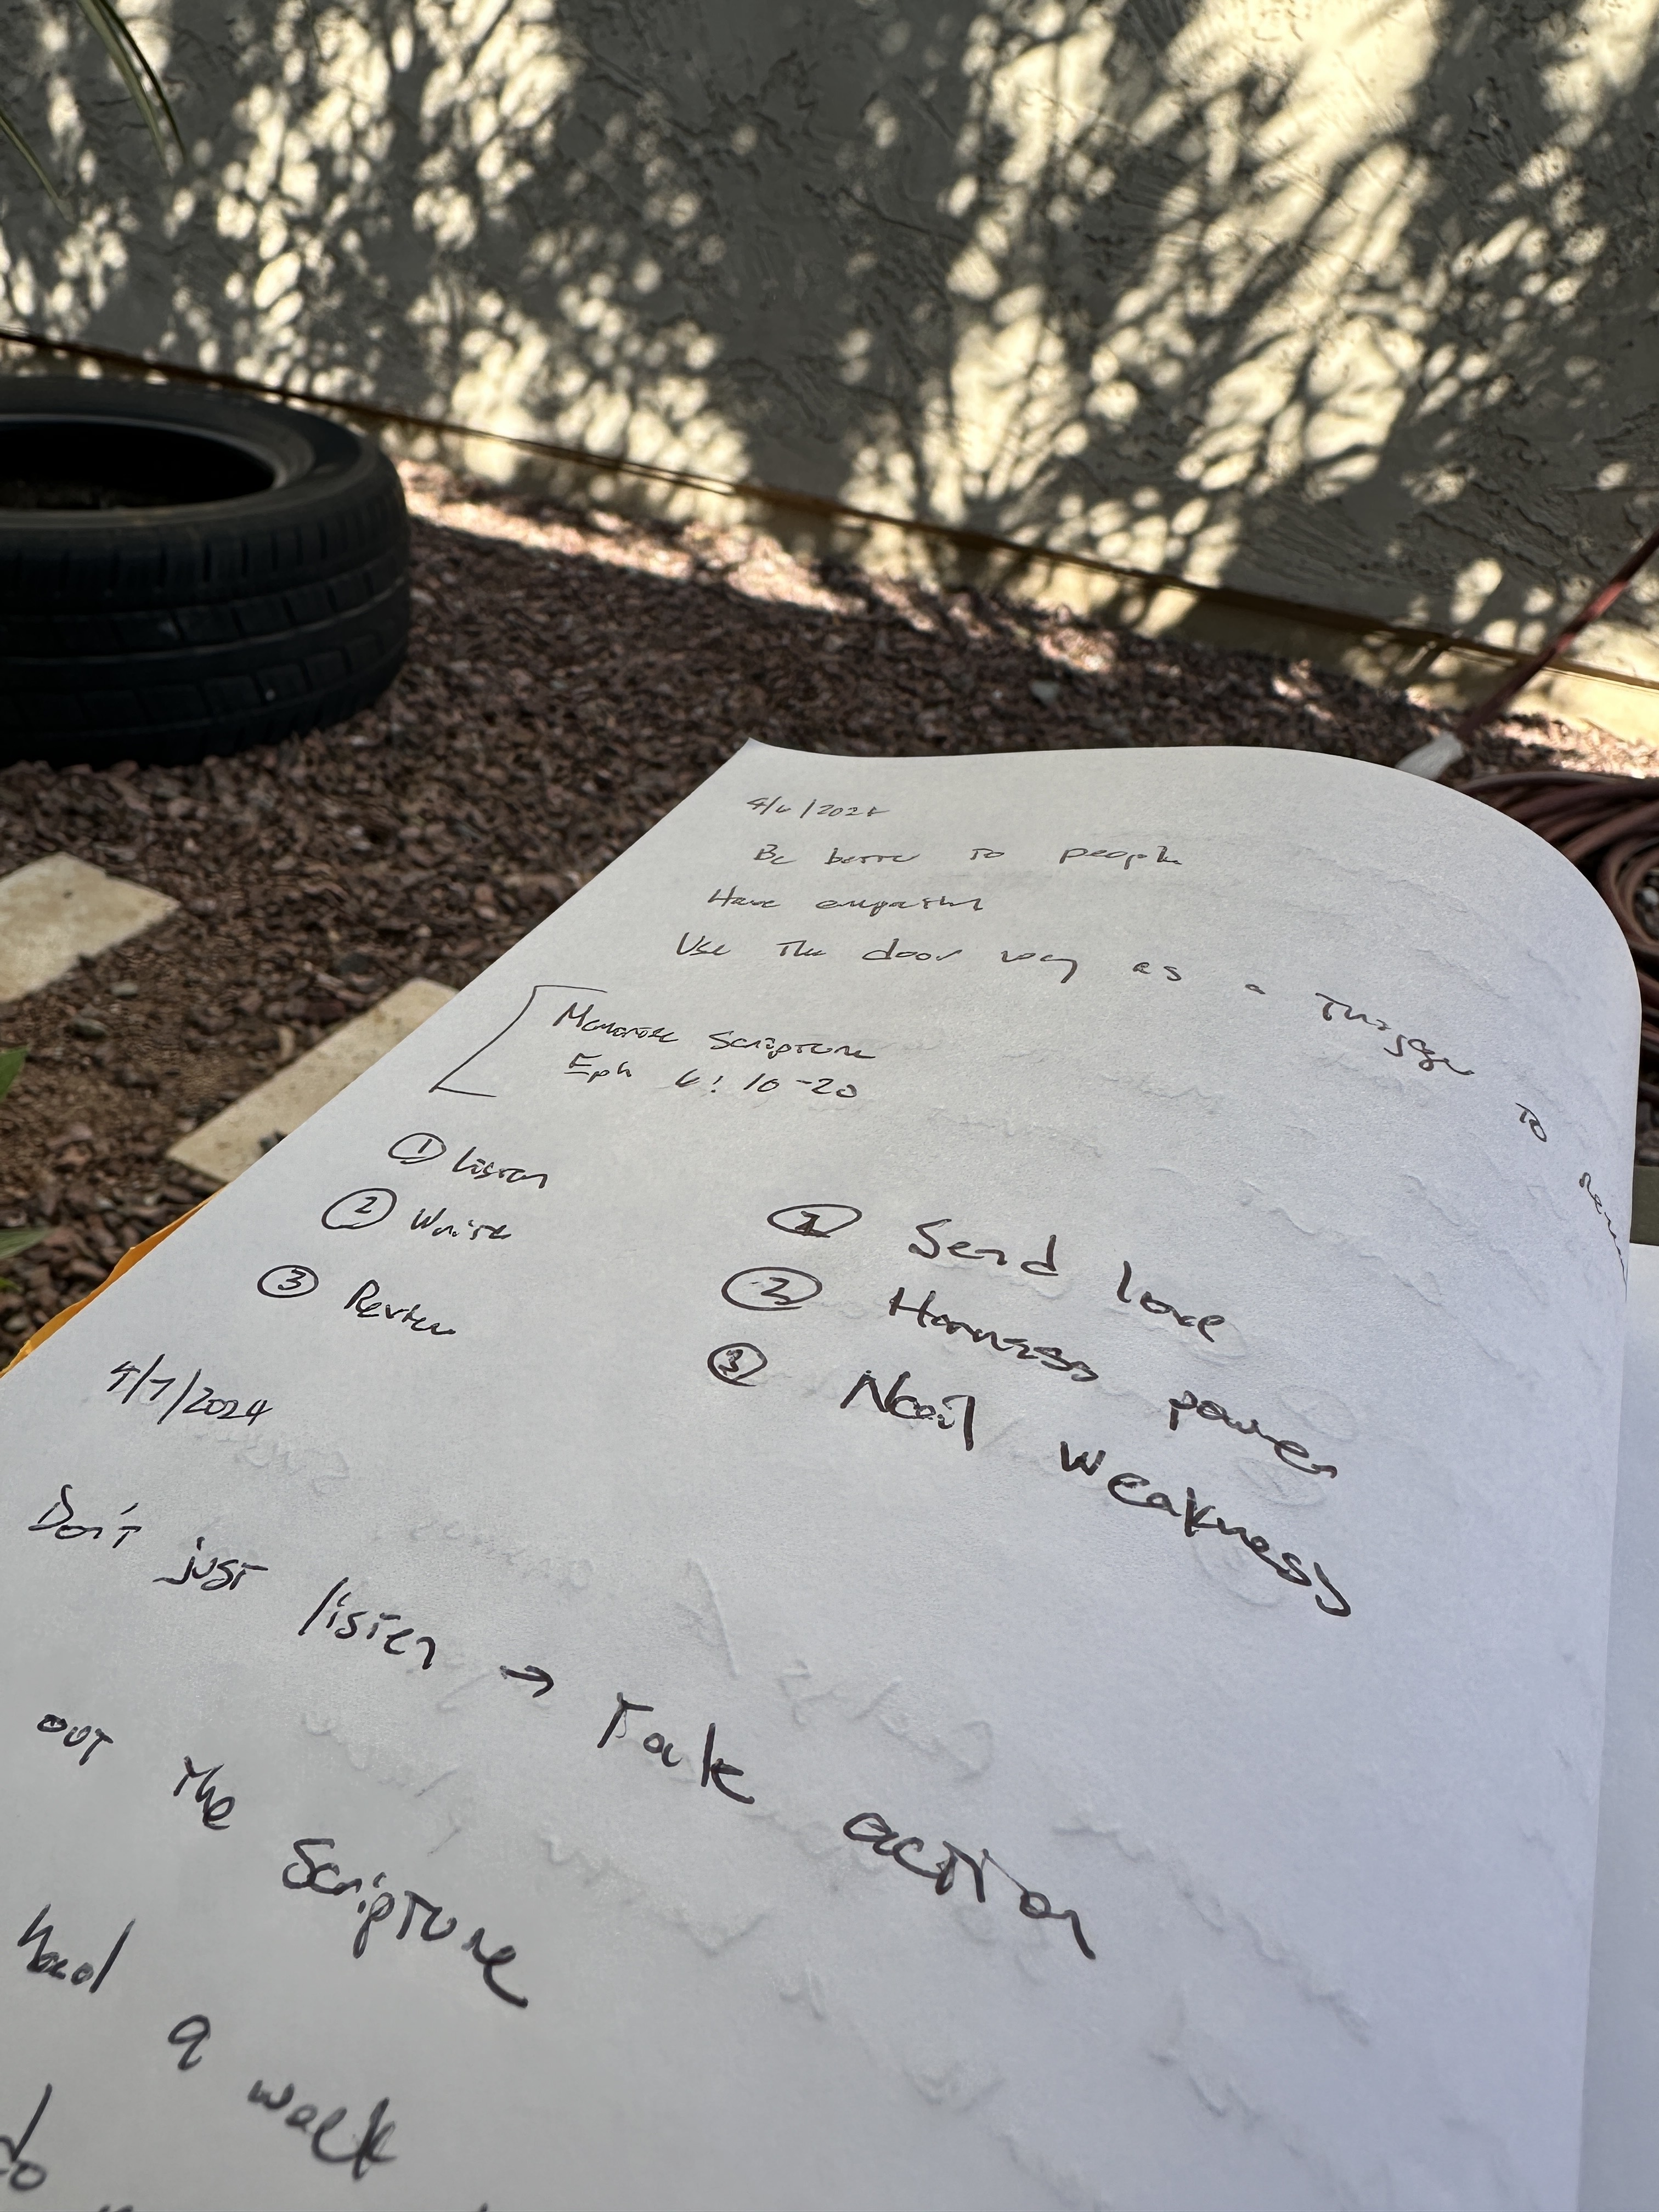 4/6/2024
Be better to people
Have empathy
Use the door way as a Trigger to
Memorize Scripture
Eph 6:10-20
① Listen
② Write
③ Review
① Send love
② Harness power
③ Nail weakness
4/7/2024
Don't just listen → Take action
out the Scripture
a walk